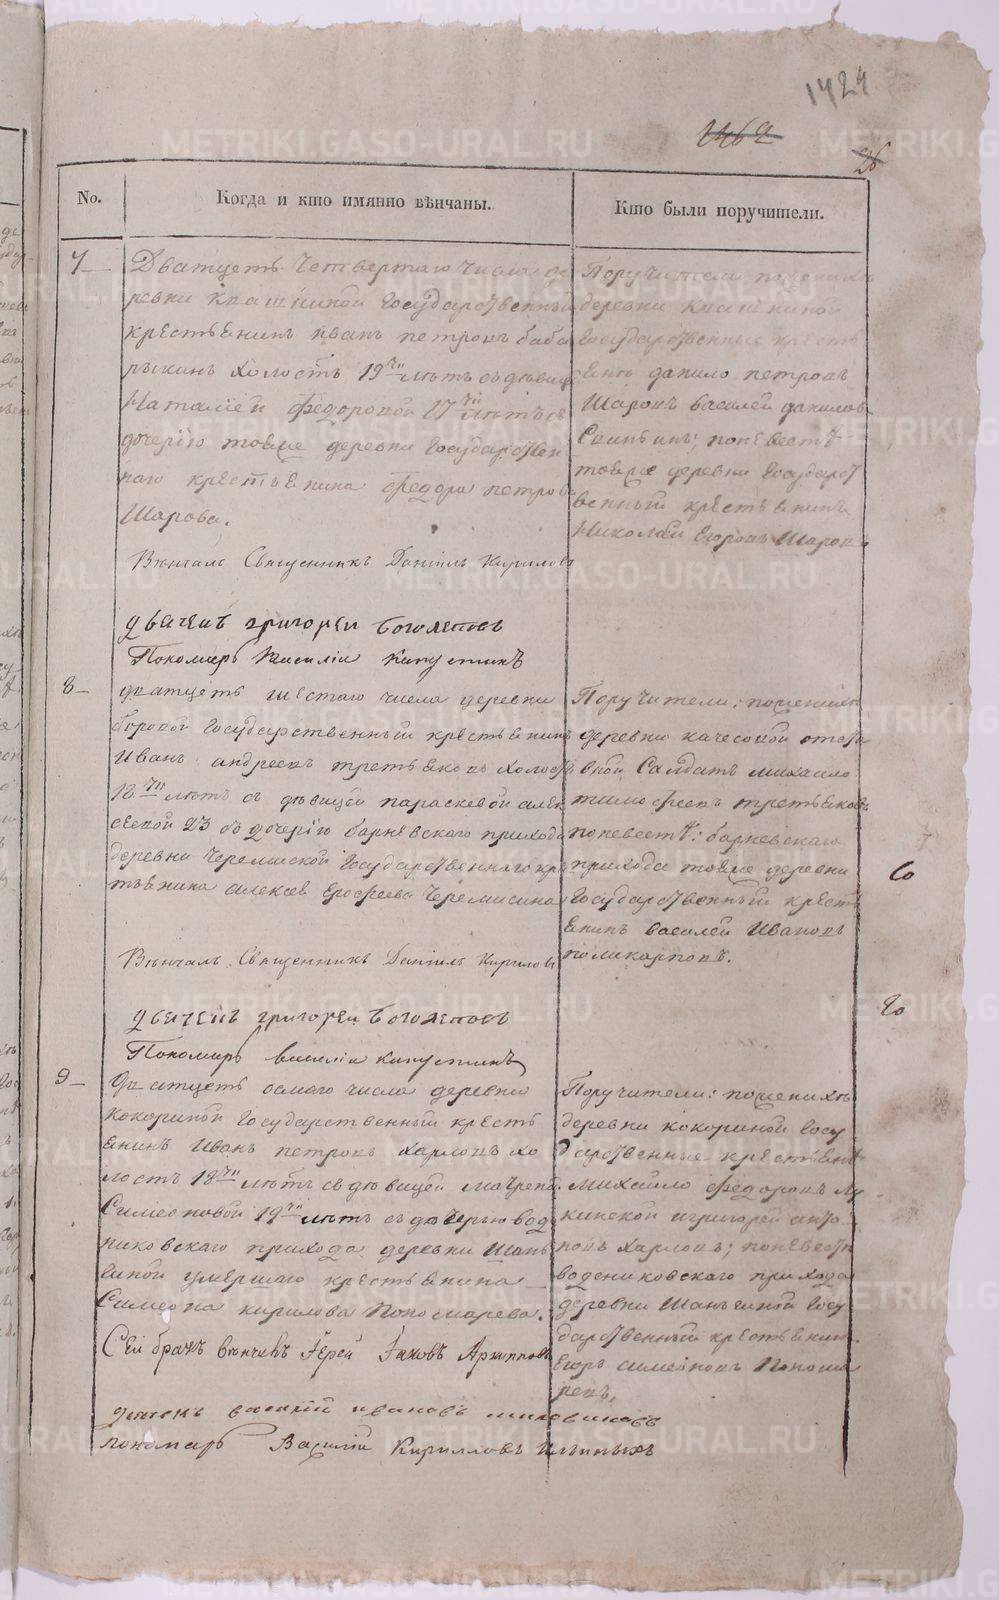 1424
1462
26
No.
Когда и кто имянно вѣнчаны.
Кто были поручители.
7
Дватцеть четвертаго числа де
ревни Квашниной Государственный
крестьянинъ Иванъ Петровъ Баба
рыкинъ холостъ 19ти лѣтъ съ дѣвицей
Наталіей Федоровой 17ти лѣтъ съ
дочерію тояже деревни Государствен
наго крестьянина Федора Петрова
Шарова.
Вѣнчалъ Священникъ Данiилъ Кириловъ
дьячекъ Григореи Боголеповъ
Пономарь Василiи Капустинъ
Поручители: по женихѣ
деревни Квашниной
Государственные кресть
яне Данило Петровъ
Шаровъ Василей Данилов
по невестѣ
тояже деревни Государст
венный крестьянинъ
Николай Егоровъ Шаровъ
8
дватцеть шестаго числа деревни
боровой Государственный крестьянинъ
Иванъ Андреевъ Третьяковъ холостъ
18ти лѣтъ съ дѣвицей Параскевой Алек
сеевой 23 съ дочерію барневскаго прихода
деревни Черемиской Государственнаго кре
тьянина Алексея Ерофеева Черемисина
Вѣнчалъ Священникъ Данiилъ Кириловъ
дьячекъ Григореи Боголеповъ
Пономарь Василiи Капустинъ
Поручители: по женихѣ
деревни Качесовой отста
вной Салдатъ Михайло
Тимофеевъ Третьяковъ
по невестѣ: барневскаго
прихода тояже деревни
Государственный кресть
янинъ Василей Ивановъ
Поликарповъ.
9
дватцеть осмаго числа деревни
Кокориной Государственный кресть
янинъ Иванъ Петровъ Харловъ хо
лостъ 18ти лѣтъ съ дѣвицей Матреной
Симеоновой 19ти лѣтъ съ дочерью вод
никовскаго прихода деревни Шань
гиной умершаго крестьянина
Симеона Кирилова Пономарева.
Сей бракъ вѣнчалъ Iерей Iаковъ Архиповъ
дьячекъ Василiй Ивановъ
пономарь Василiй Кирилловъ Ильиныхъ
Поручители: по женихѣ
деревни Кокориной Госу
дарственные крестьяне
Михайло Федоровъ Лу
кинской и Григорей Анто
новъ Харловъ; по невестѣ
водениковскаго прихода
деревни Шаньгиной Госу
дарственный крестьянинъ
Егоръ Симеоновъ Понома
ревъ.
METRIKI.GASO-URAL.RU